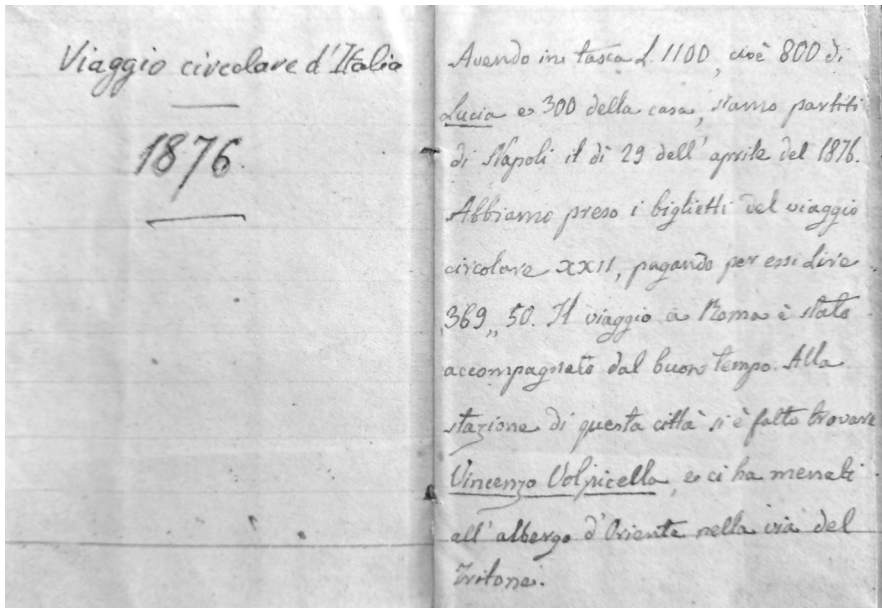 Viaggio circolare d'Italia
1876
Avendo in tasca L. 1100, cioè 800 di
Lucia e 300 della casa, siamo partiti
di Napoli il dì 29 dell'aprile del 1876.
Abbiamo preso i biglietti del viaggio
circolare XXII, pagando per essi Lire
369,,50. Il viaggio a Roma è stato
accompagnato dal buon tempo. Alla
stazione di questa città si è fatto trovare
Vincenzo Volpicella, e ci ha menati
all'albergo d'Oriente nella via del
Tritone.